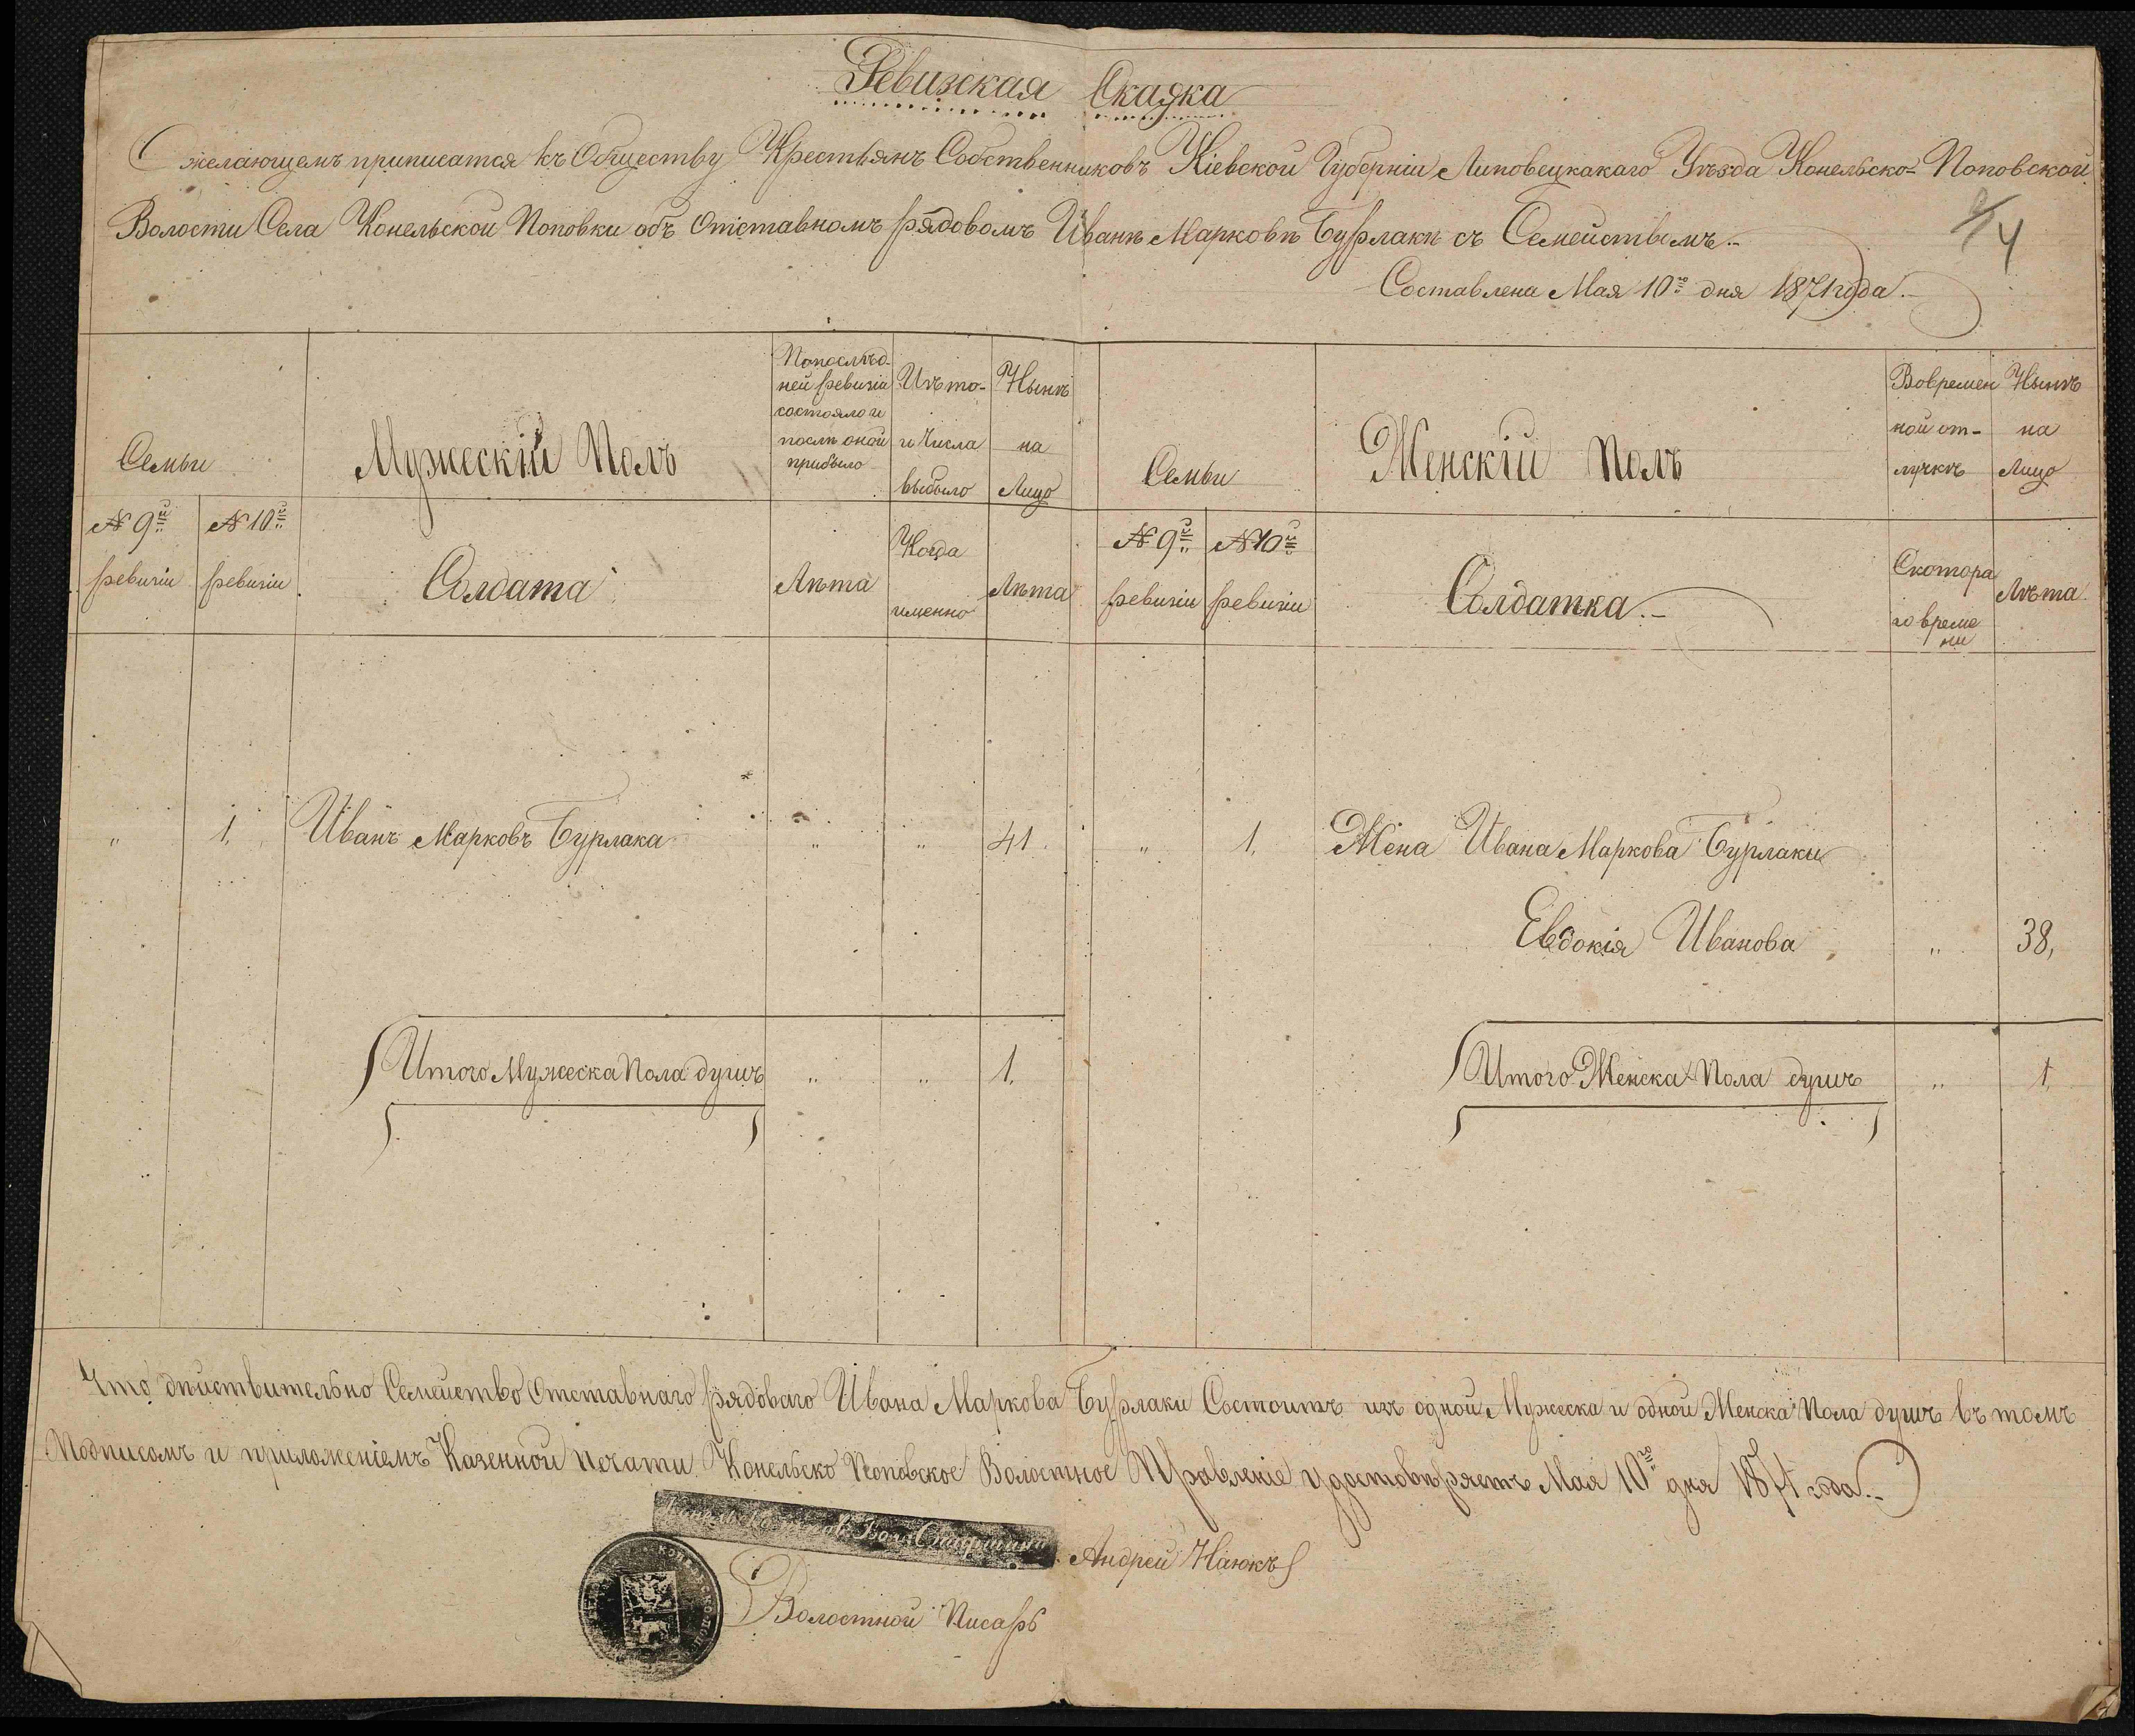 Ревизская Сказка
О желающемъ приписатся къ Обществу Крестьянъ Собственниковъ Кіевской Губерніи Липовецкакаго Уѣзда Конельско-Поповской
Волости Села Конельской Поповки объ Отставномъ рядовомъ Иванѣ Марковѣ Бурлакѣ съ Семействомъ.-
4
Составлена Мая 10го дня 1871 года.-
Семьи
№ 9й ревизіи
№ 10й ревизіи
Мужескій Полъ
Солдата
Попослѣд-
ней ревизіи
состояло и
послѣ оной
прибыло
Лѣта
Изъ то-
го Числа
выбыло
Когда
именно
Нынѣ
на
Лицо
Лѣта
Семьи
№ 9й ревизіи
№ 10й ревизіи
Женскій Полъ
Солдатка.-
Вовремен
ной от-
лучкѣ
Скотора
го време
ни
Нынѣ
на
Лицо
Лѣта
" 1, Иванъ Марковъ Бурлака " " 41. " 1, Жена Ивана Маркова Бурлаки
Евдокія Иванова " 38,
Итого Мужеска Пола душъ " " 1, Итого Женска Пола душъ " 1,
Что дѣйствительно Семейство Отставнаго рядоваго Ивана Маркова Бурлаки Состоитъ изъ одной Мужеска и одной Женска Пола душъ въ томъ
Подписомъ и приложеніемъ Казенной печати Конельско Поповское Волостное Правленіе удостовѣряетъ Мая 10го дня 1871 года.-
Андрей
Волостной Писарь